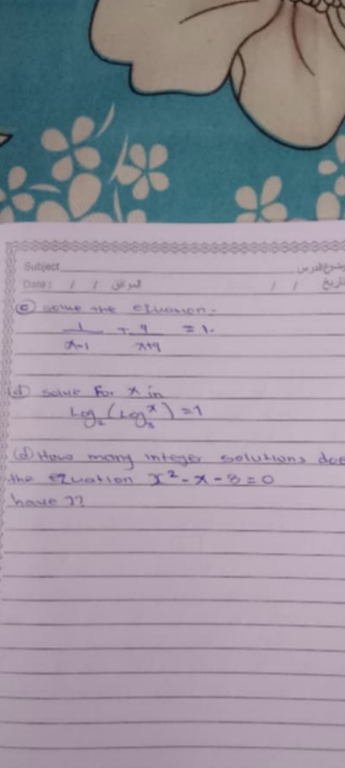 Subject موضوع الدرس
Date: / / الموافق / / التاريخ
(c) Solve the equation.
1/x-1 + 4/x+4 = 1.
(d) solve for x in
Log₂(Log₃ˣ) = 1
(d) How many integer solutions does
the equation x² - x - 3 = 0
have??